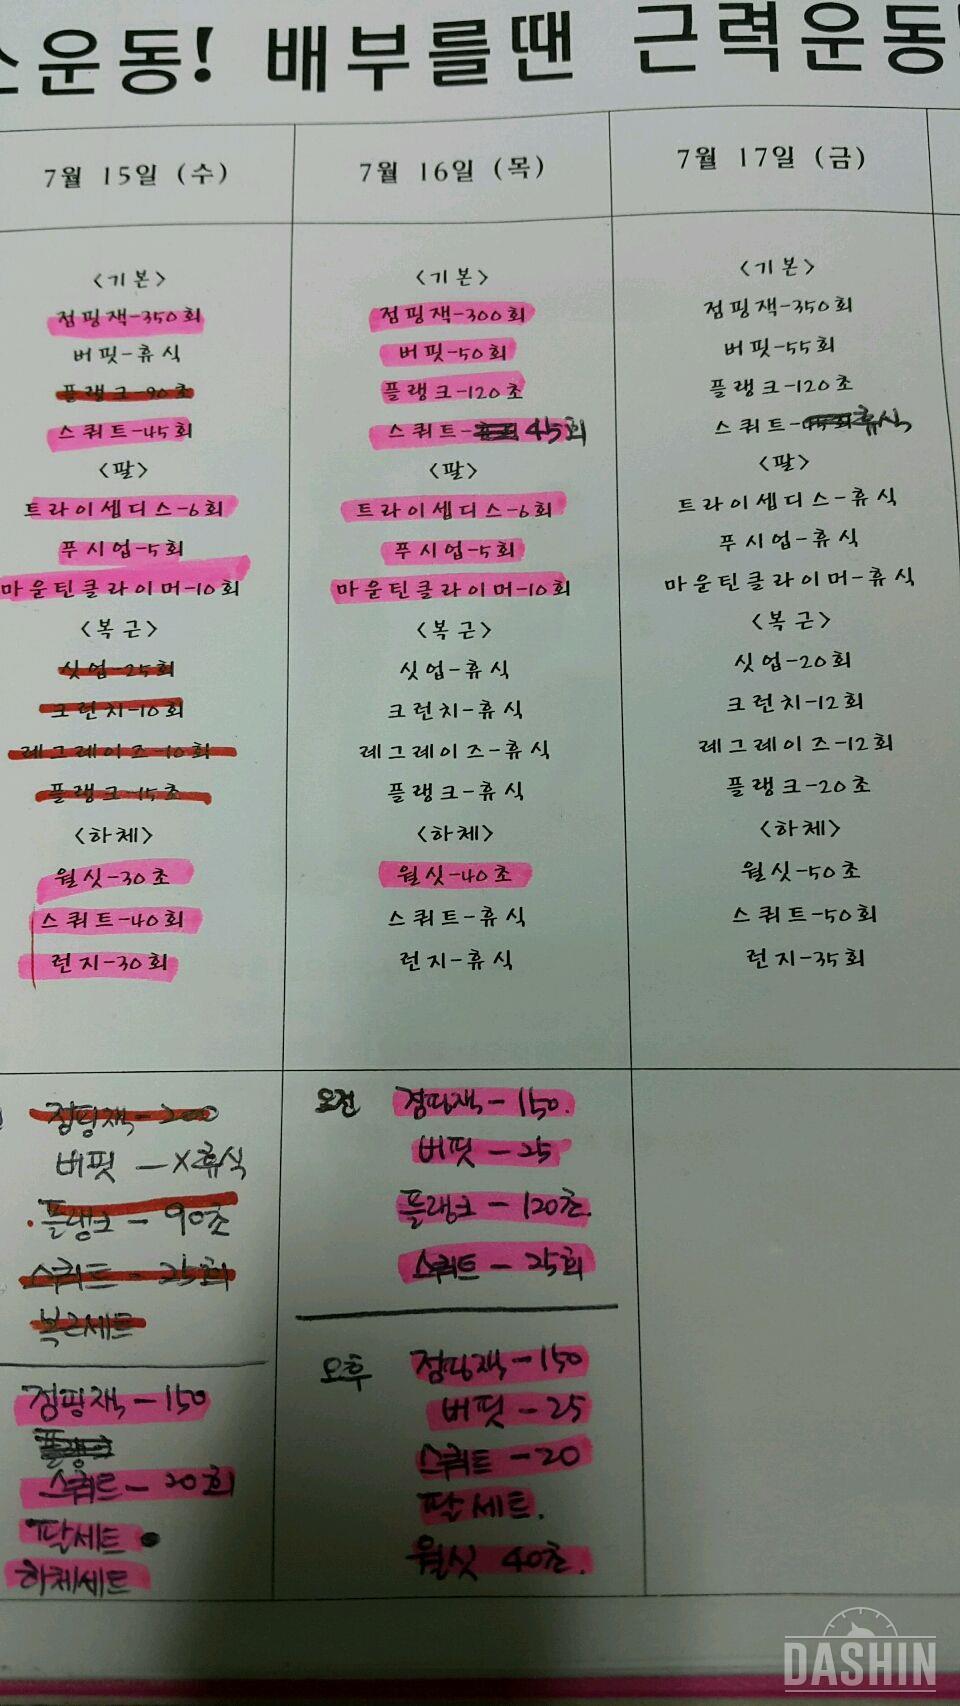 운동! 배부를땐 근력운동
7월 15일 (수)
<기본>
점핑잭-350회
버핏-휴식
플랭크-90초
스쿼트-45회
<팔>
트라이셉디스-6회
푸시업-5회
마운틴클라이머-10회
<복근>
싯업-25회
크런치-10회
레그레이즈-10회
플랭크-15초
<하체>
월싯-30초
스쿼트-40회
런지-30회
점핑잭-200
버핏 - X휴식
플랭크 - 90초
스쿼트 - 25회
복근세트
점핑잭-150
플랭크
스쿼트-20회
팔세트
하체세트
7월 16일 (목)
<기본>
점핑잭-300회
버핏-50회
플랭크-120초
스쿼트- 45회
<팔>
트라이셉디스-6회
푸시업-5회
마운틴클라이머-10회
<복근>
싯업-휴식
크런치-휴식
레그레이즈-휴식
플랭크-휴식
<하체>
월싯-40초
스쿼트-휴식
런지-휴식
오전 점핑잭-150.
버핏-25
플랭크-120초.
스쿼트-25회
오후 점핑잭-150
버핏-25
스쿼트-20
팔세트.
월싯 40초.
7월 17일 (금)
<기본>
점핑잭-350회
버핏-55회
플랭크-120초
스쿼트- 휴식
<팔>
트라이셉디스-휴식
푸시업-휴식
마운틴클라이머-휴식
<복근>
싯업-20회
크런치-12회
레그레이즈-12회
플랭크-20초
<하체>
월싯-50초
스쿼트-50회
런지-35회
DASHIN